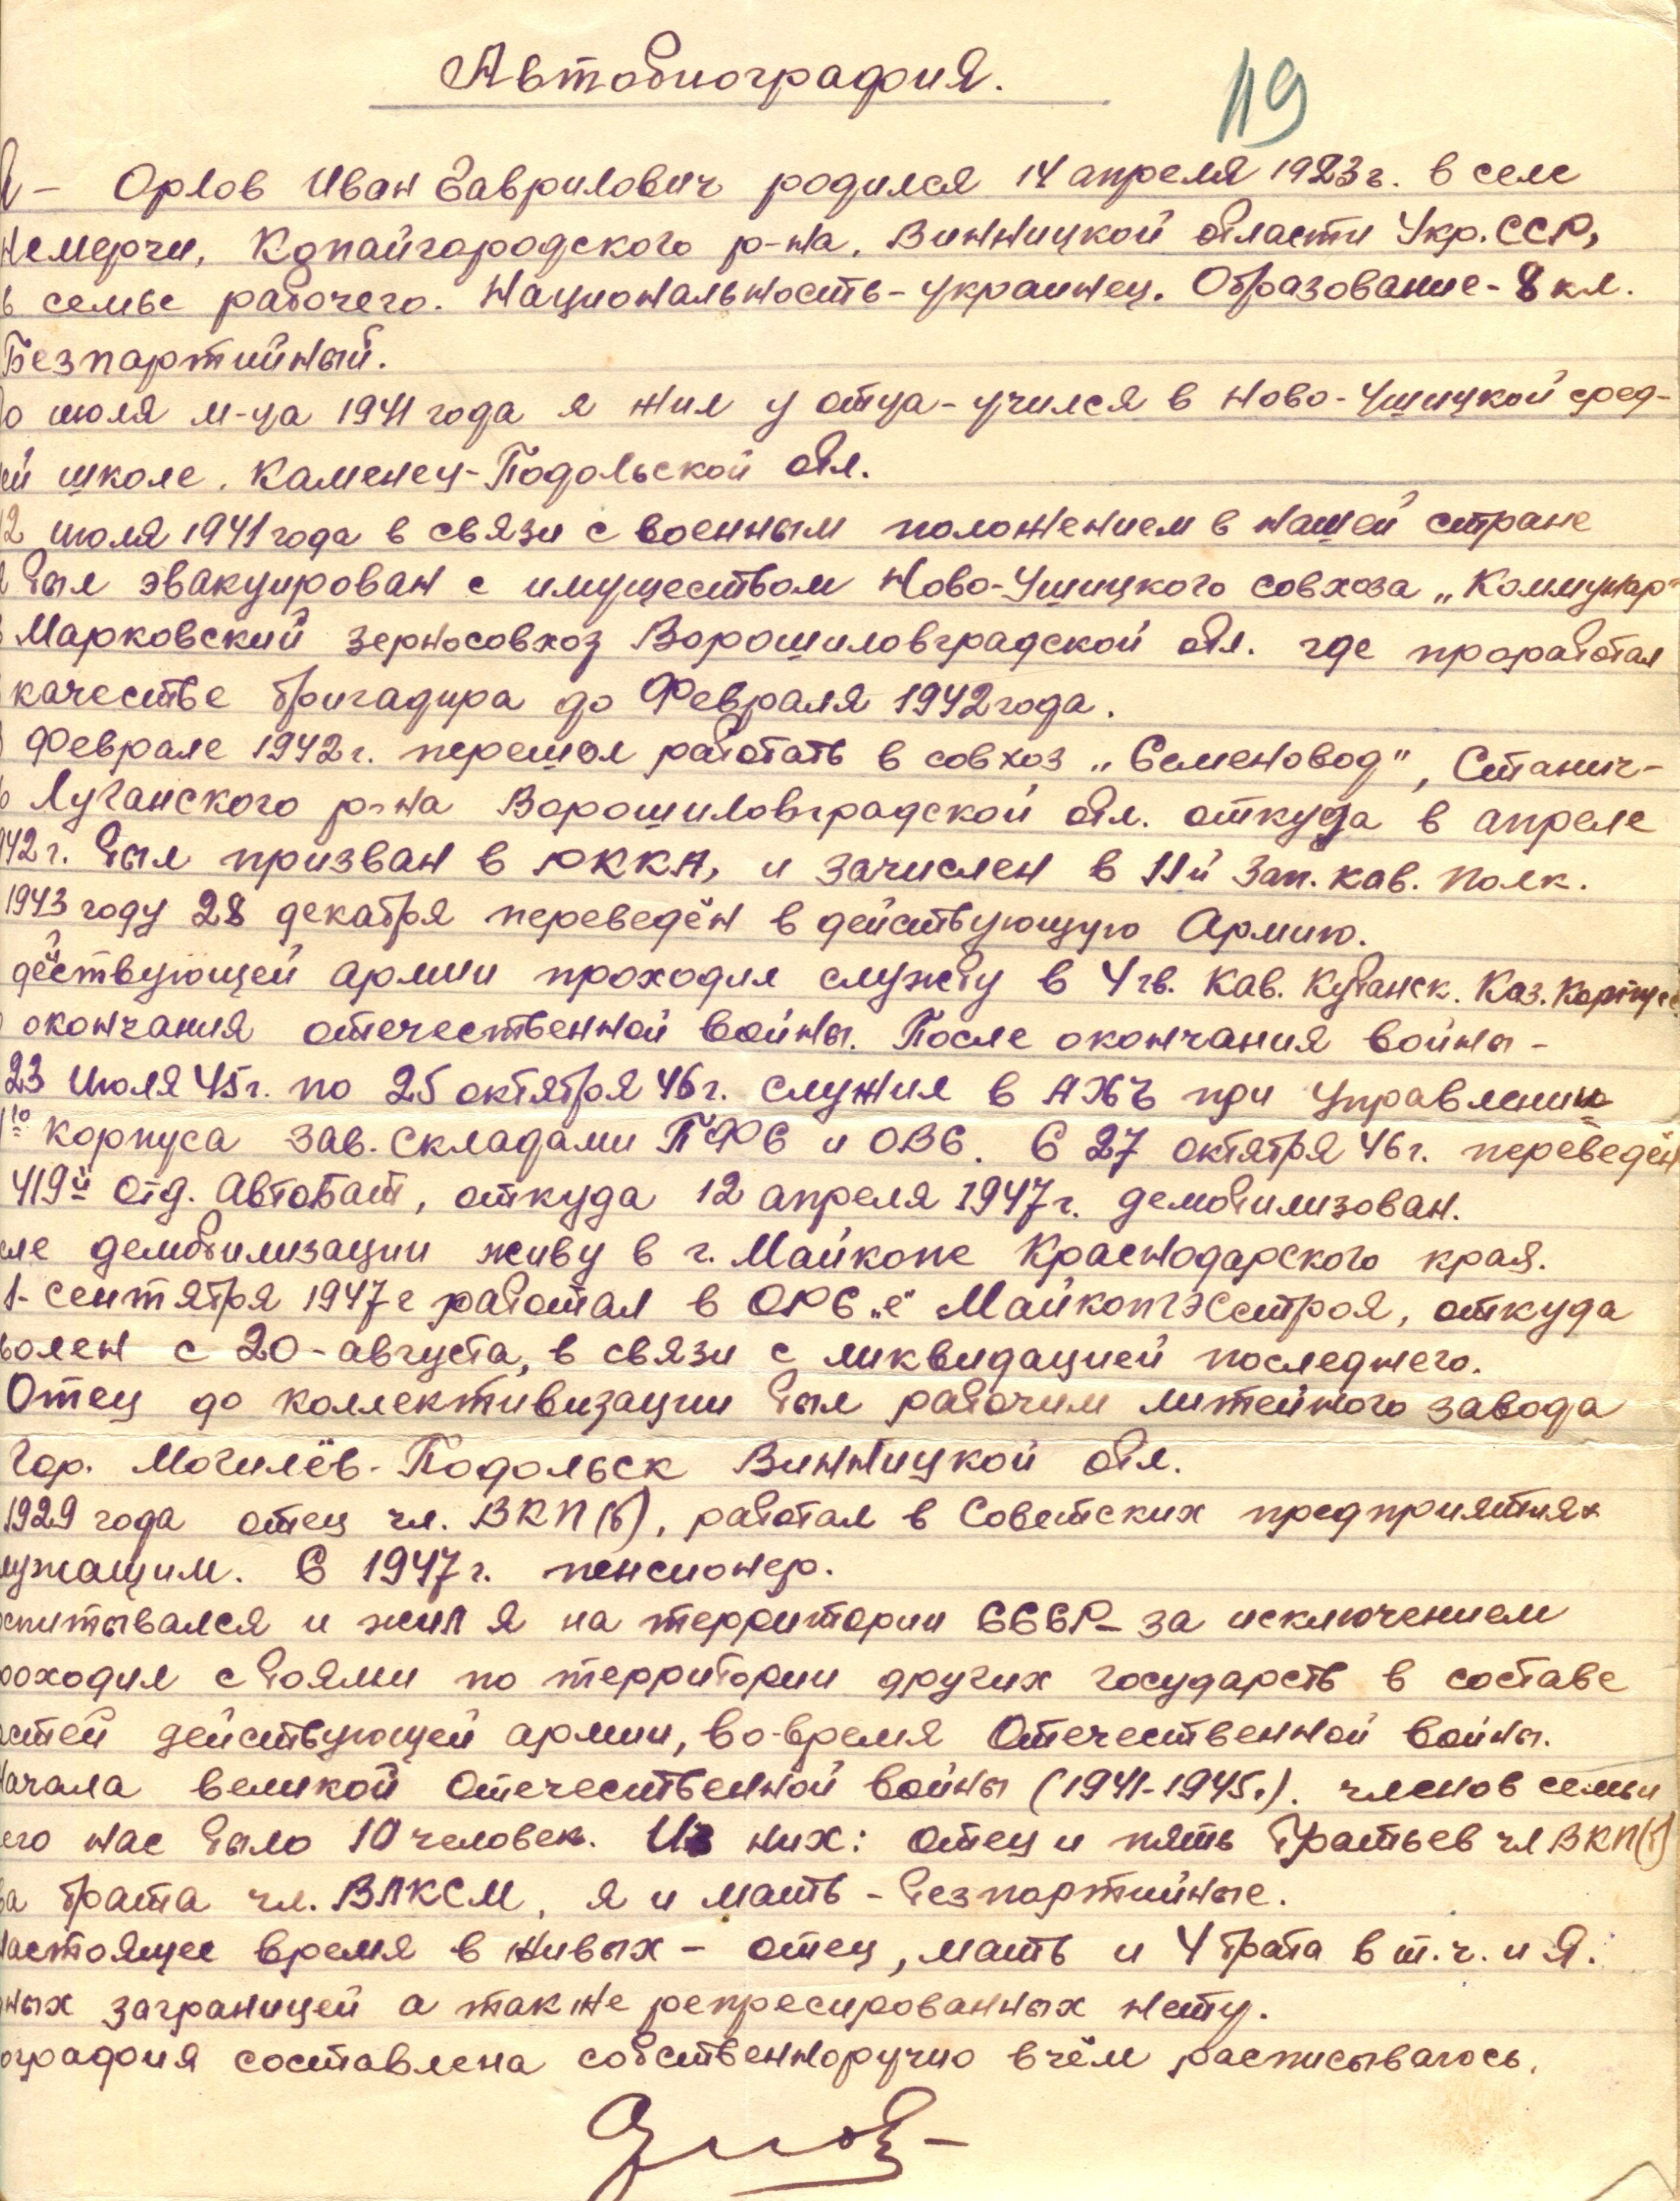 Автобиография.
119
Я - Орлов Иван Гаврилович родился 14 апреля 1923г. в селе
Немерчи, Копайгородского р-на, Винницкой области Укр.ССР,
в семье рабочего. Национальность - украинец. Образование - 8 кл.
Безпартийный.
о июля м-ца 1941 года я жил у отца - учился в Ново-Ушицкой сред-
ей школе, Каменец-Подольской обл.
12 июля 1941 года в связи с военным положением в нашей стране
я был эвакуирован с имуществом Ново-Ушицкого совхоза „Коммунар"
в Марковский зерносовхоз Ворошиловградской обл. где проработал
качестве бригадира до Февраля 1942 года.
В Феврале 1942г. перешол работать в совхоз „Семеновод", Станич-
о Луганского р-на Ворошиловградской обл. откуда в апреле
942г. был призван в РККА, и зачислен в 11й Зап. кав. полк.
1943 году 28 декабря переведён в действующую Армию.
действующей армии проходил службу в 4 гв. Кав. Кубанск. Каз. Корпусе
о окончания отечественной войны. После окончания войны -
23 Июля 45г. по 25 октября 46г. служил в АХЧ при Управлении
го корпуса зав. складами ПФС и ОВС. С 27 октября 46г. переведён
419й Отд. Автобат, откуда 12 апреля 1947г. демобилизован.
сле демобилизации живу в г. Майкопе Краснодарского края.
1- сентября 1947г работал в ОРСе МайкопГЭСстроя, откуда
волен с 20-августа, в связи с ликвидацией последнего.
Отец до коллективизации был рабочим литейного завода
Гор. Могилёв-Подольск Винницкой обл.
1929 года отец чл. ВКП(б), работал в Советских предприятиях
лужащим. С 1947г. пенсионер.
оспитывался и жил я на территории СССР - за исключением
роходил с боями по территории других государств в составе
астей действующей армии, во-время Отечественной войны.
начала великой Отечественной войны (1941-1945г.). членов семьи
его нас было 10 человек. Из них: отец и пять братьев чл ВКП(б)
ва брата чл. ВЛКСМ, я и мать - безпартийные.
настоящее время в живых - отец, мать и 4 брата в т.ч. и Я.
ных заграницей а также репресированных нету.
ография составлена собственноручно в чём расписываюсь.